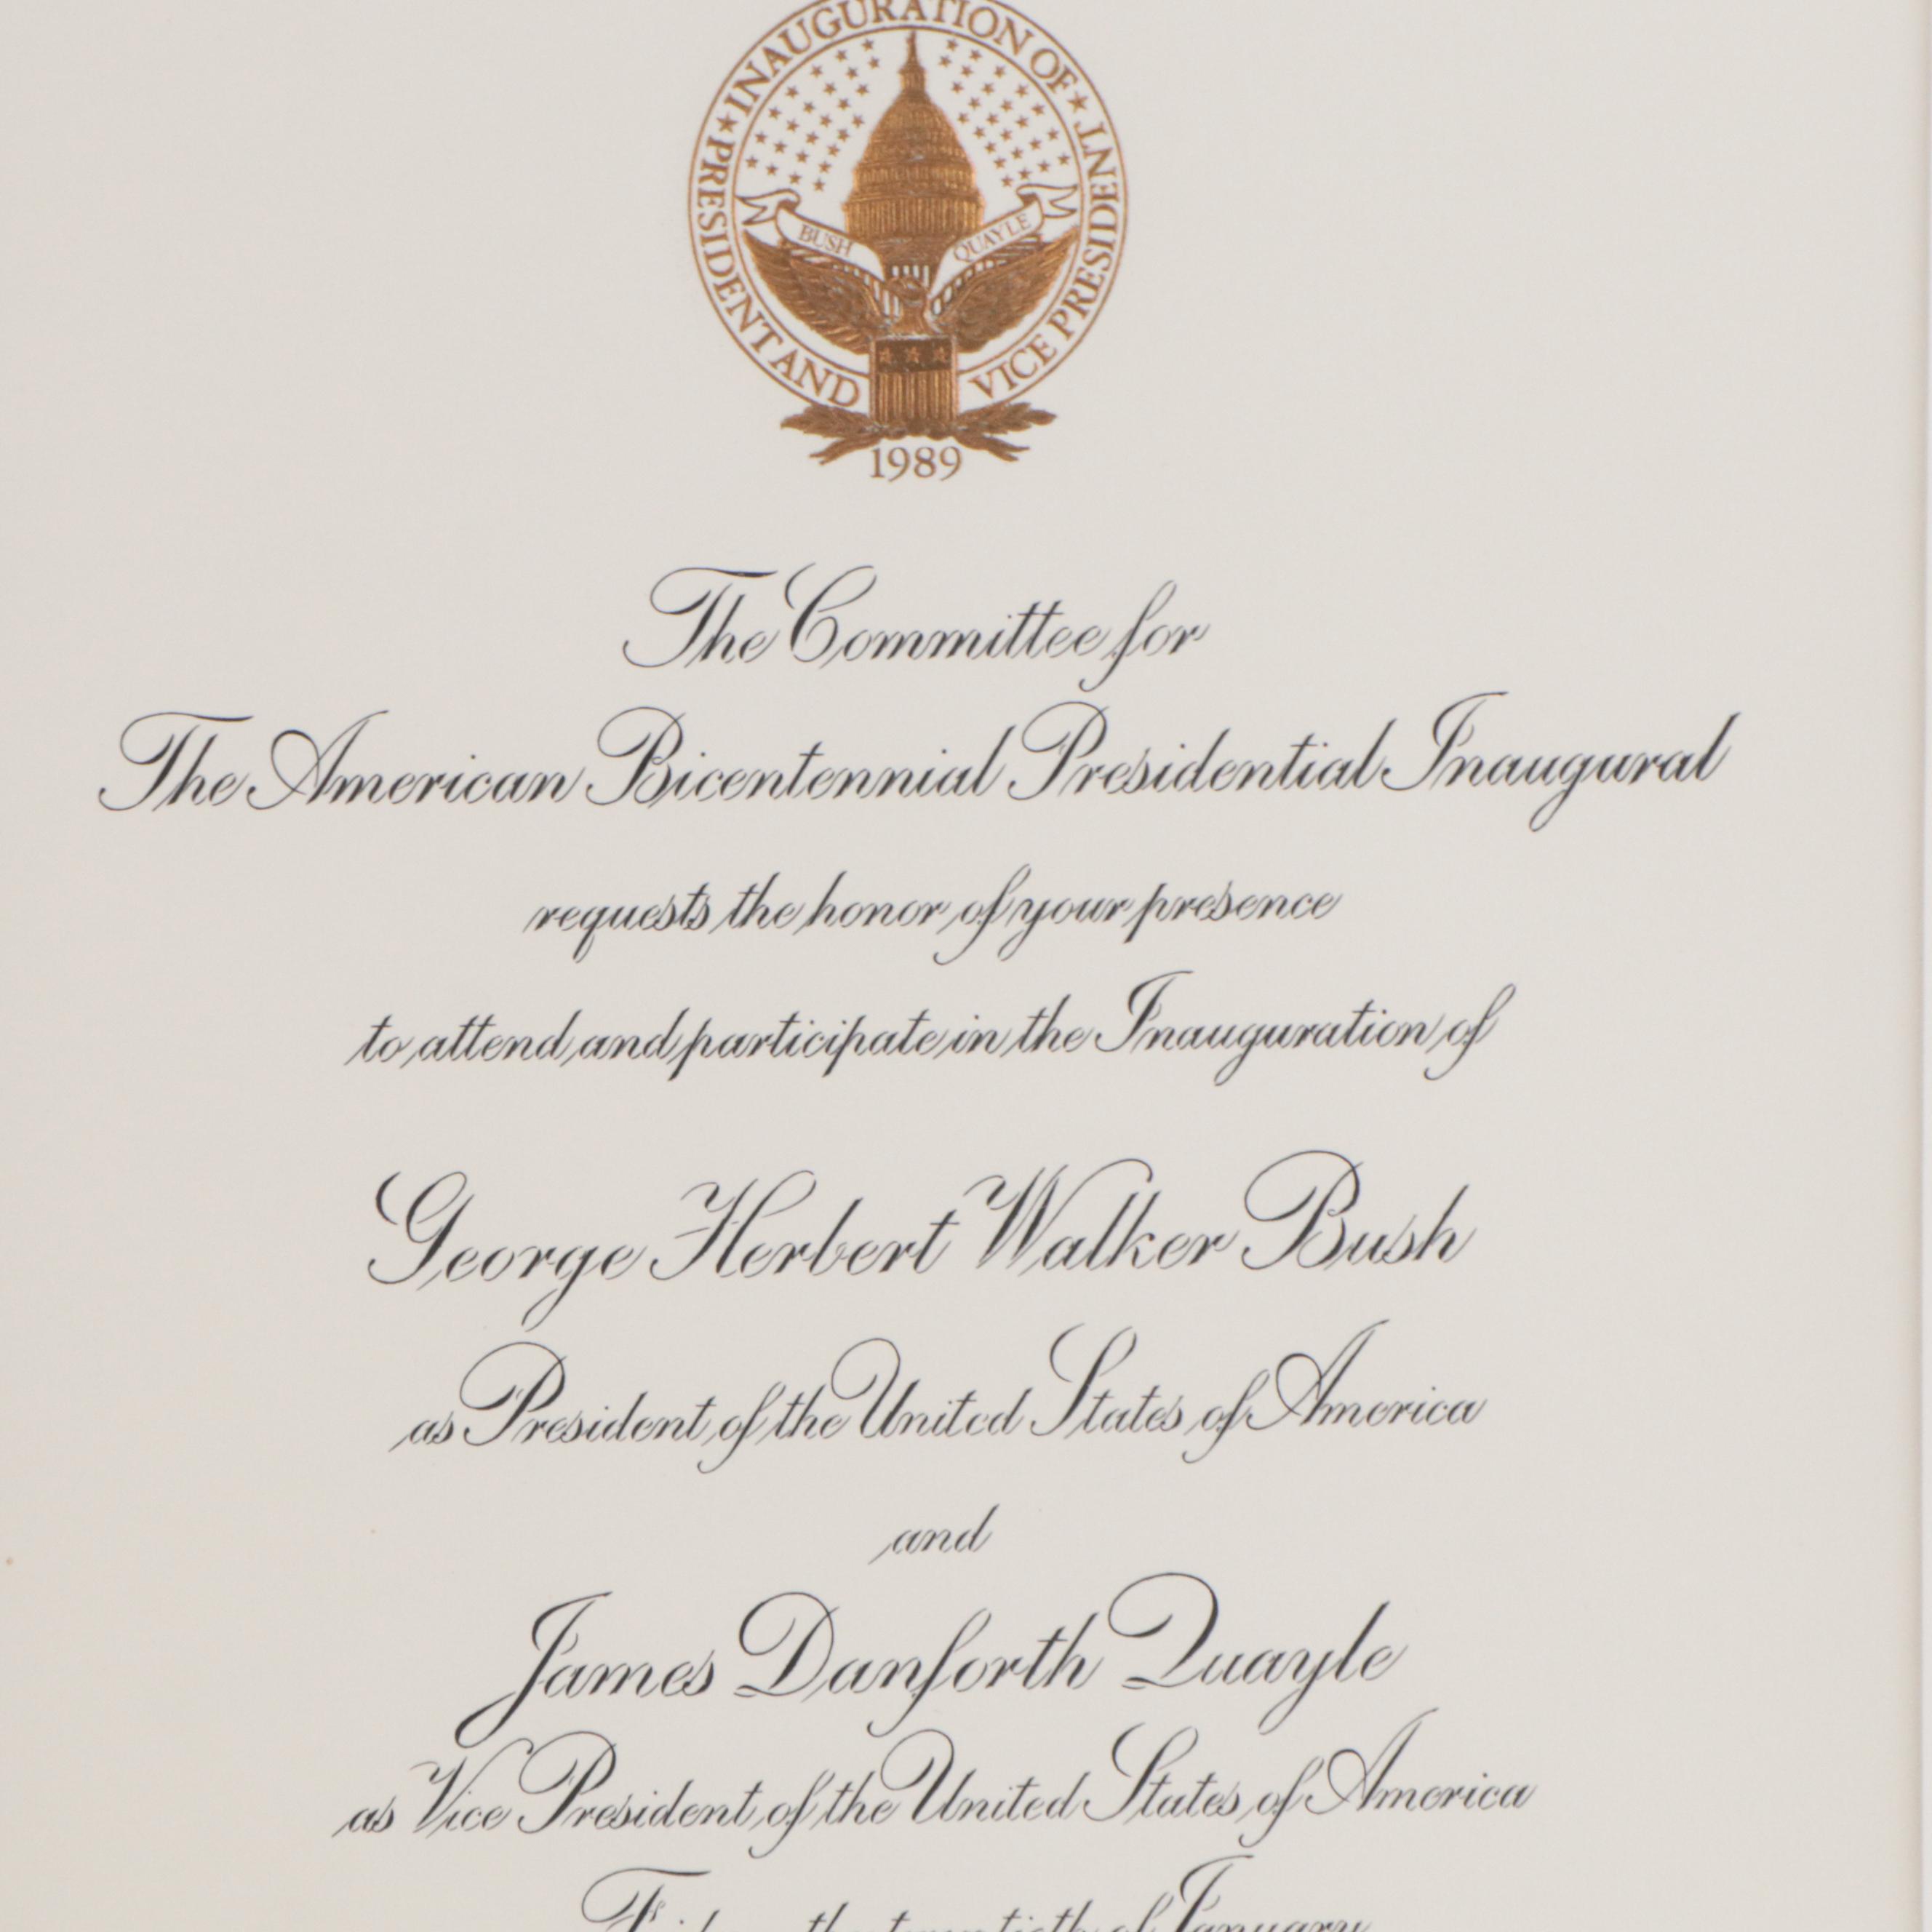 ★ INAUGURATION OF ★
PRESIDENT AND VICE PRESIDENT
BUSH QUAYLE
1989
The Committee for
The American Bicentennial Presidential Inaugural
requests the honor of your presence
to attend and participate in the Inauguration of
George Herbert Walker Bush
as President of the United States of America
and
James Danforth Quayle
as Vice President of the United States of America
Friday, the twentieth of January